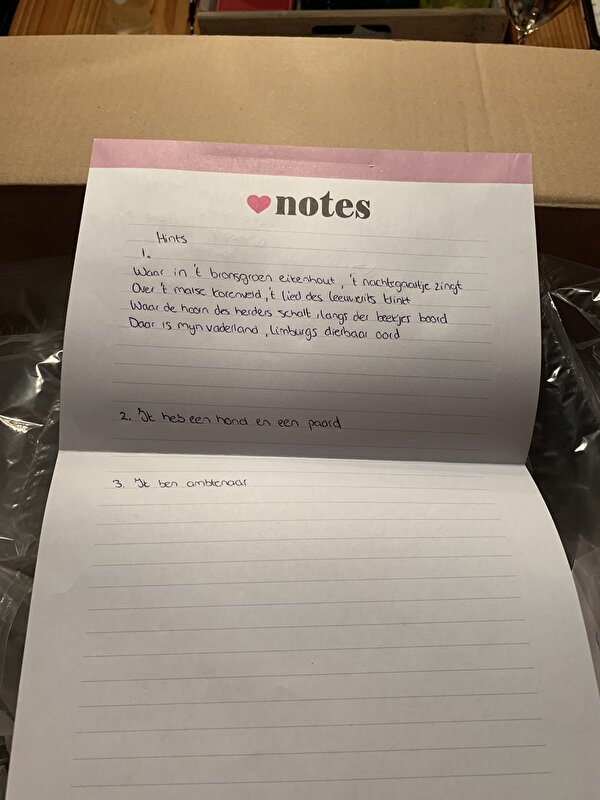 notes
Hints
1.
Waar in 't bronsgroen eikenhout, 't nachtegaaltje zingt
Over 't malse korenveld, 't lied des leeuweriks klinkt
Waar de hoorn des herders schalt, langs der beekjes boord
Daar is mijn vaderland, Limburgs dierbaar oord
2. Ik heb een hond en een paard
3. Ik ben ambtenaar